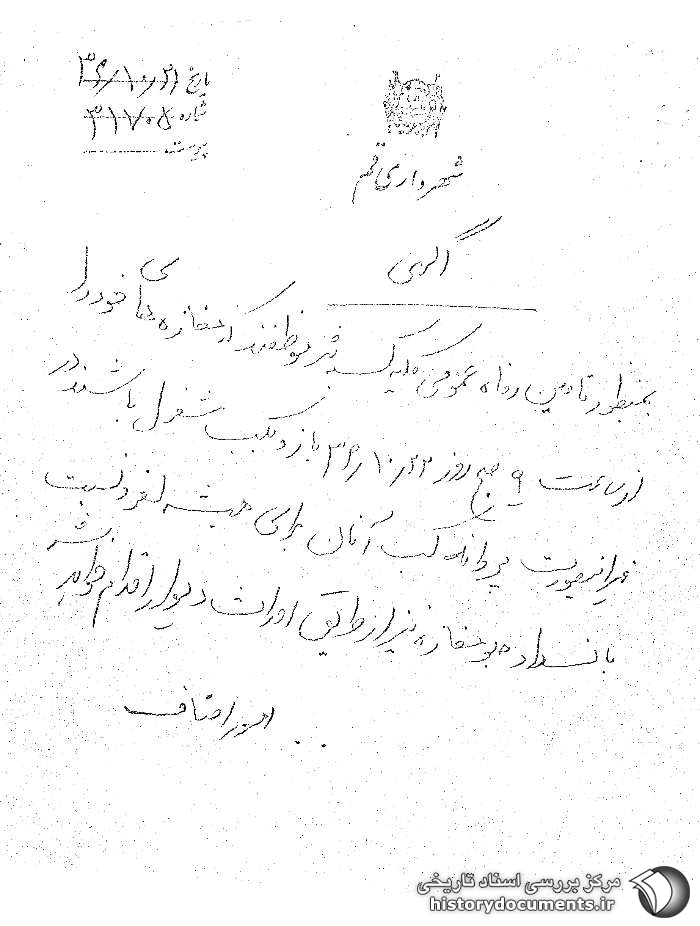 تاریخ ۳۶/۱۰/۲۱
شماره ۳۱۷۰۸
پیوست
شهرداری قم
آگهی
بمنظور تامین رفاه عمومی کلیه کسبه قم موظفند که مغازه های خود را
از ساعت ۹ صبح روز ۳۶/۱۰/۲۲ باز و بکسب مشغول باشند در
غیر اینصورت پروانه کسب آنان برای همیشه لغو و نسبت
با نسداد درب مغازه نیز از طریق دیوار اقدام خواهد شد
امور اصناف
مرکز بررسی اسناد تاریخی
historydocuments.ir